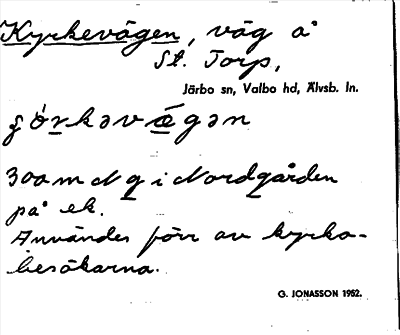 Kyrkevägen, väg å
St. Torp,
Järbo sn, Valbo hd, Älvsb. ln.
300 m N g i Nordgården
på ek.
Användes förr av kyrko-
besökarna.
G. JONASSON 1952.